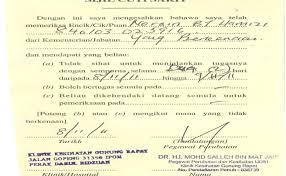 SIJIL CUTI SAKIT
Dengan ini saya mengesahkan bahawa saya telah
memeriksa Encik/Cik/Puan
dari Kementerian/Jabatan Yang Berkenaan
dan mendapati yang beliau:
(a) Tidak sihat untuk menjalankan tugasnya
dengan sempurna selama
hari 8/11/11 hingga 9/11/11
(b) Boleh bertugas semula pada
(c) Beliau dikehendaki datang semula untuk
pemeriksaan pada
[Potong (b) atau (c) mengikut mana yang tidak
berkenaan]
8/11/11
Tarikh
(Tandatangan)
Pegawai Perubatan
KLINIK KESIHATAN GUNUNG RAPAT
JALAN GOPENG 31350 IPOH
PERAK DARUL RIDZUAN
DR. HJ. MOHD SALLEH BIN MAT JAP
Pegawai Perubatan dan Kesihatan UD51
Klinik Kesihatan Gunung Rapat
No. Pendaftaran Penuh